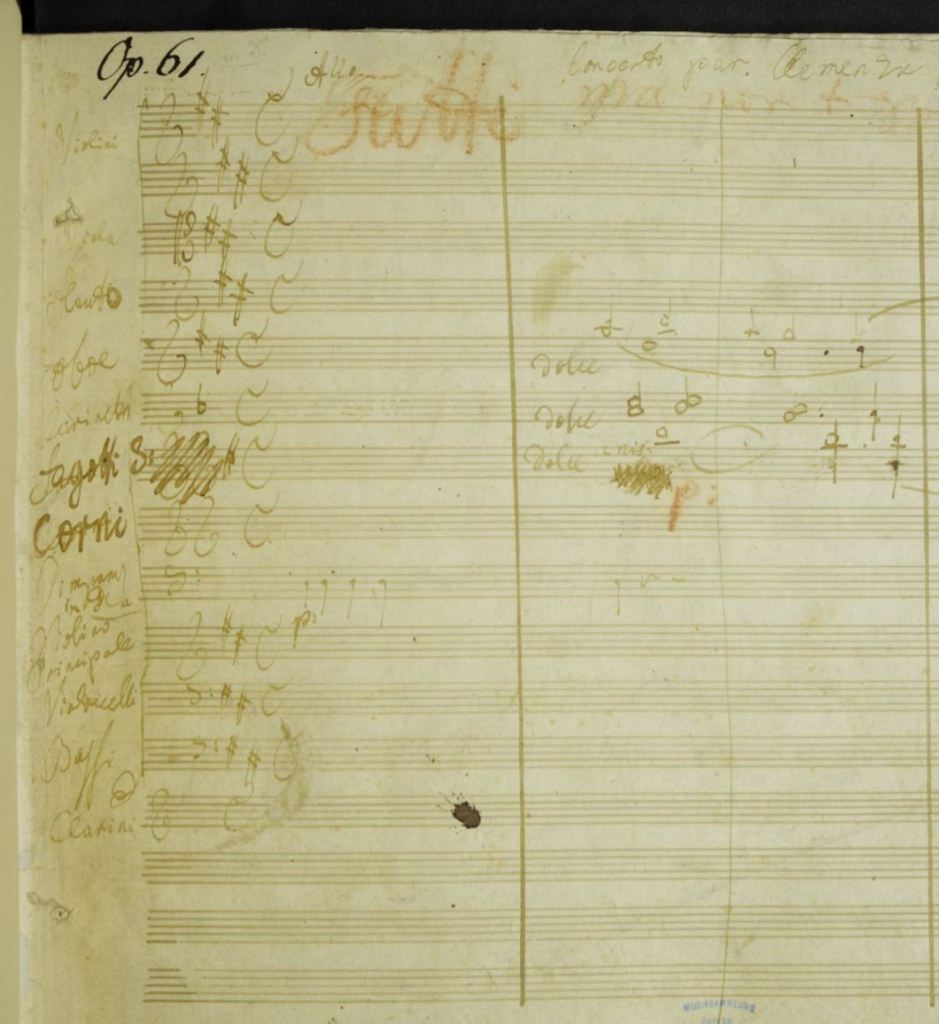 Op. 61.
Allo Concerto par Clemenza
Tutti ma non t
Violini
Viola
flauto
oboe
dolce
Clarinetti
dolce
fagotti
dolce unis:
p:
Corni
Timpani
in D A
p:
Violino
Principale
Violoncelli
Bassi
Clarini
MUSIKSAMMLUNG